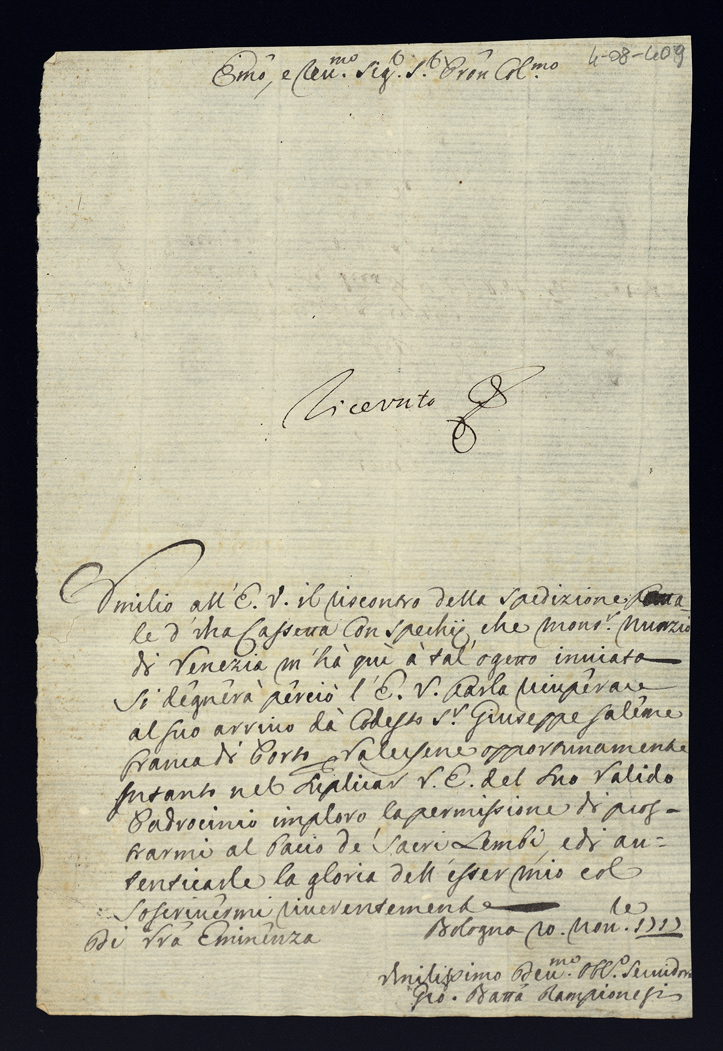 4-08-409
Emo, e Reu.mo Sig.r S.r Pron Col.mo
Riceuuto
Vmilio all' E. V. il riscontro della spedizione
le d' vna Cassetta con spechij che mons.r Nunzio
di Venezia m'hà què à tal' ogetto inuiata
si degnerà perciò l' E. V. farla ricuperare
al suo arriuo dà Codesto S.r Giuseppe
franca di Porto, e Valersene opportunamente
Intanto nel suplicar V. E. del suo Valido
Padrocinio imploro la permissione di pros-
trarmi al Bacio de' Sacri Lembi, e di au=
tenticarle la gloria dell' esser mio col
soscriuermi riuerentemente
Di Vrã Eminenza
Bologna 20. Nou.
Vmilissimo Deu.mo Obb.o Seruidore
Gio. Batta Rampionesi